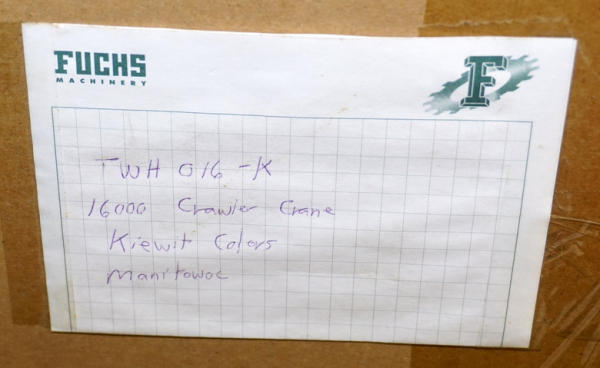 FUCHS
MACHINERY
F
TWH 016-K
16000 Crawler Crane
Kiewit Colors
Manitowoc